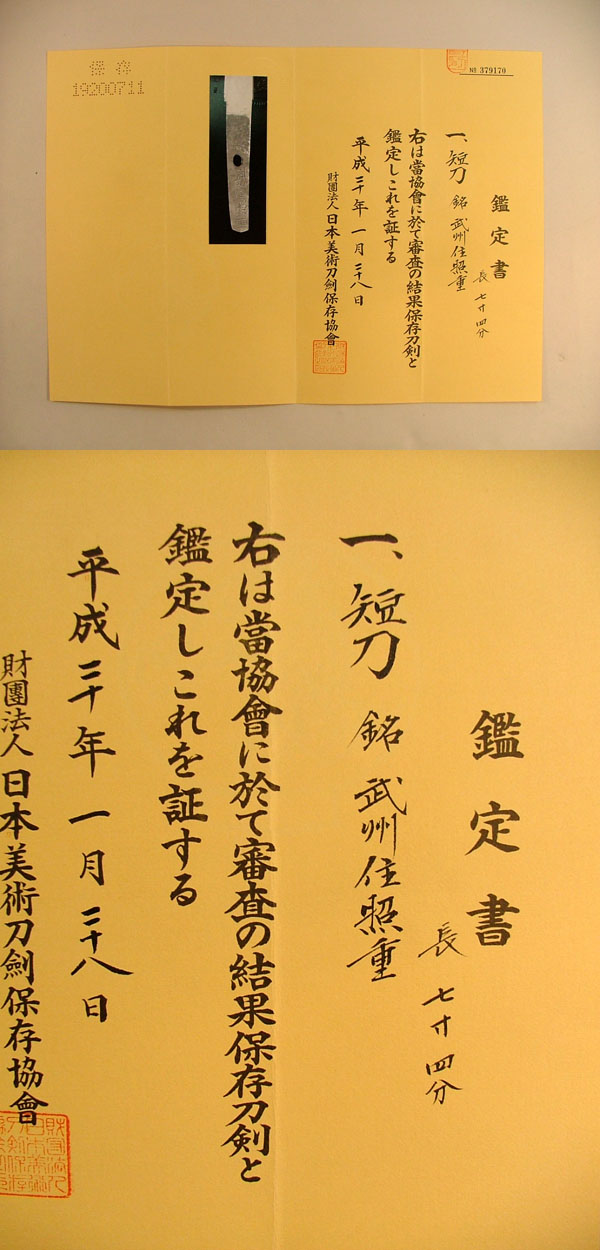 保存
19200711
№ 379170
鑑定書
長 七寸四分
一、短刀 銘 武州住照重
右は當協會に於て審査の結果保存刀剣と
鑑定しこれを証する
平成二十年一月二十八日
財團法人日本美術刀劍保存協會
鑑定書
長 七寸四分
一、短刀 銘 武州住照重
右は當協會に於て審査の結果保存刀剣と
鑑定しこれを証する
平成二十年一月二十八日
財團法人日本美術刀劍保存協會